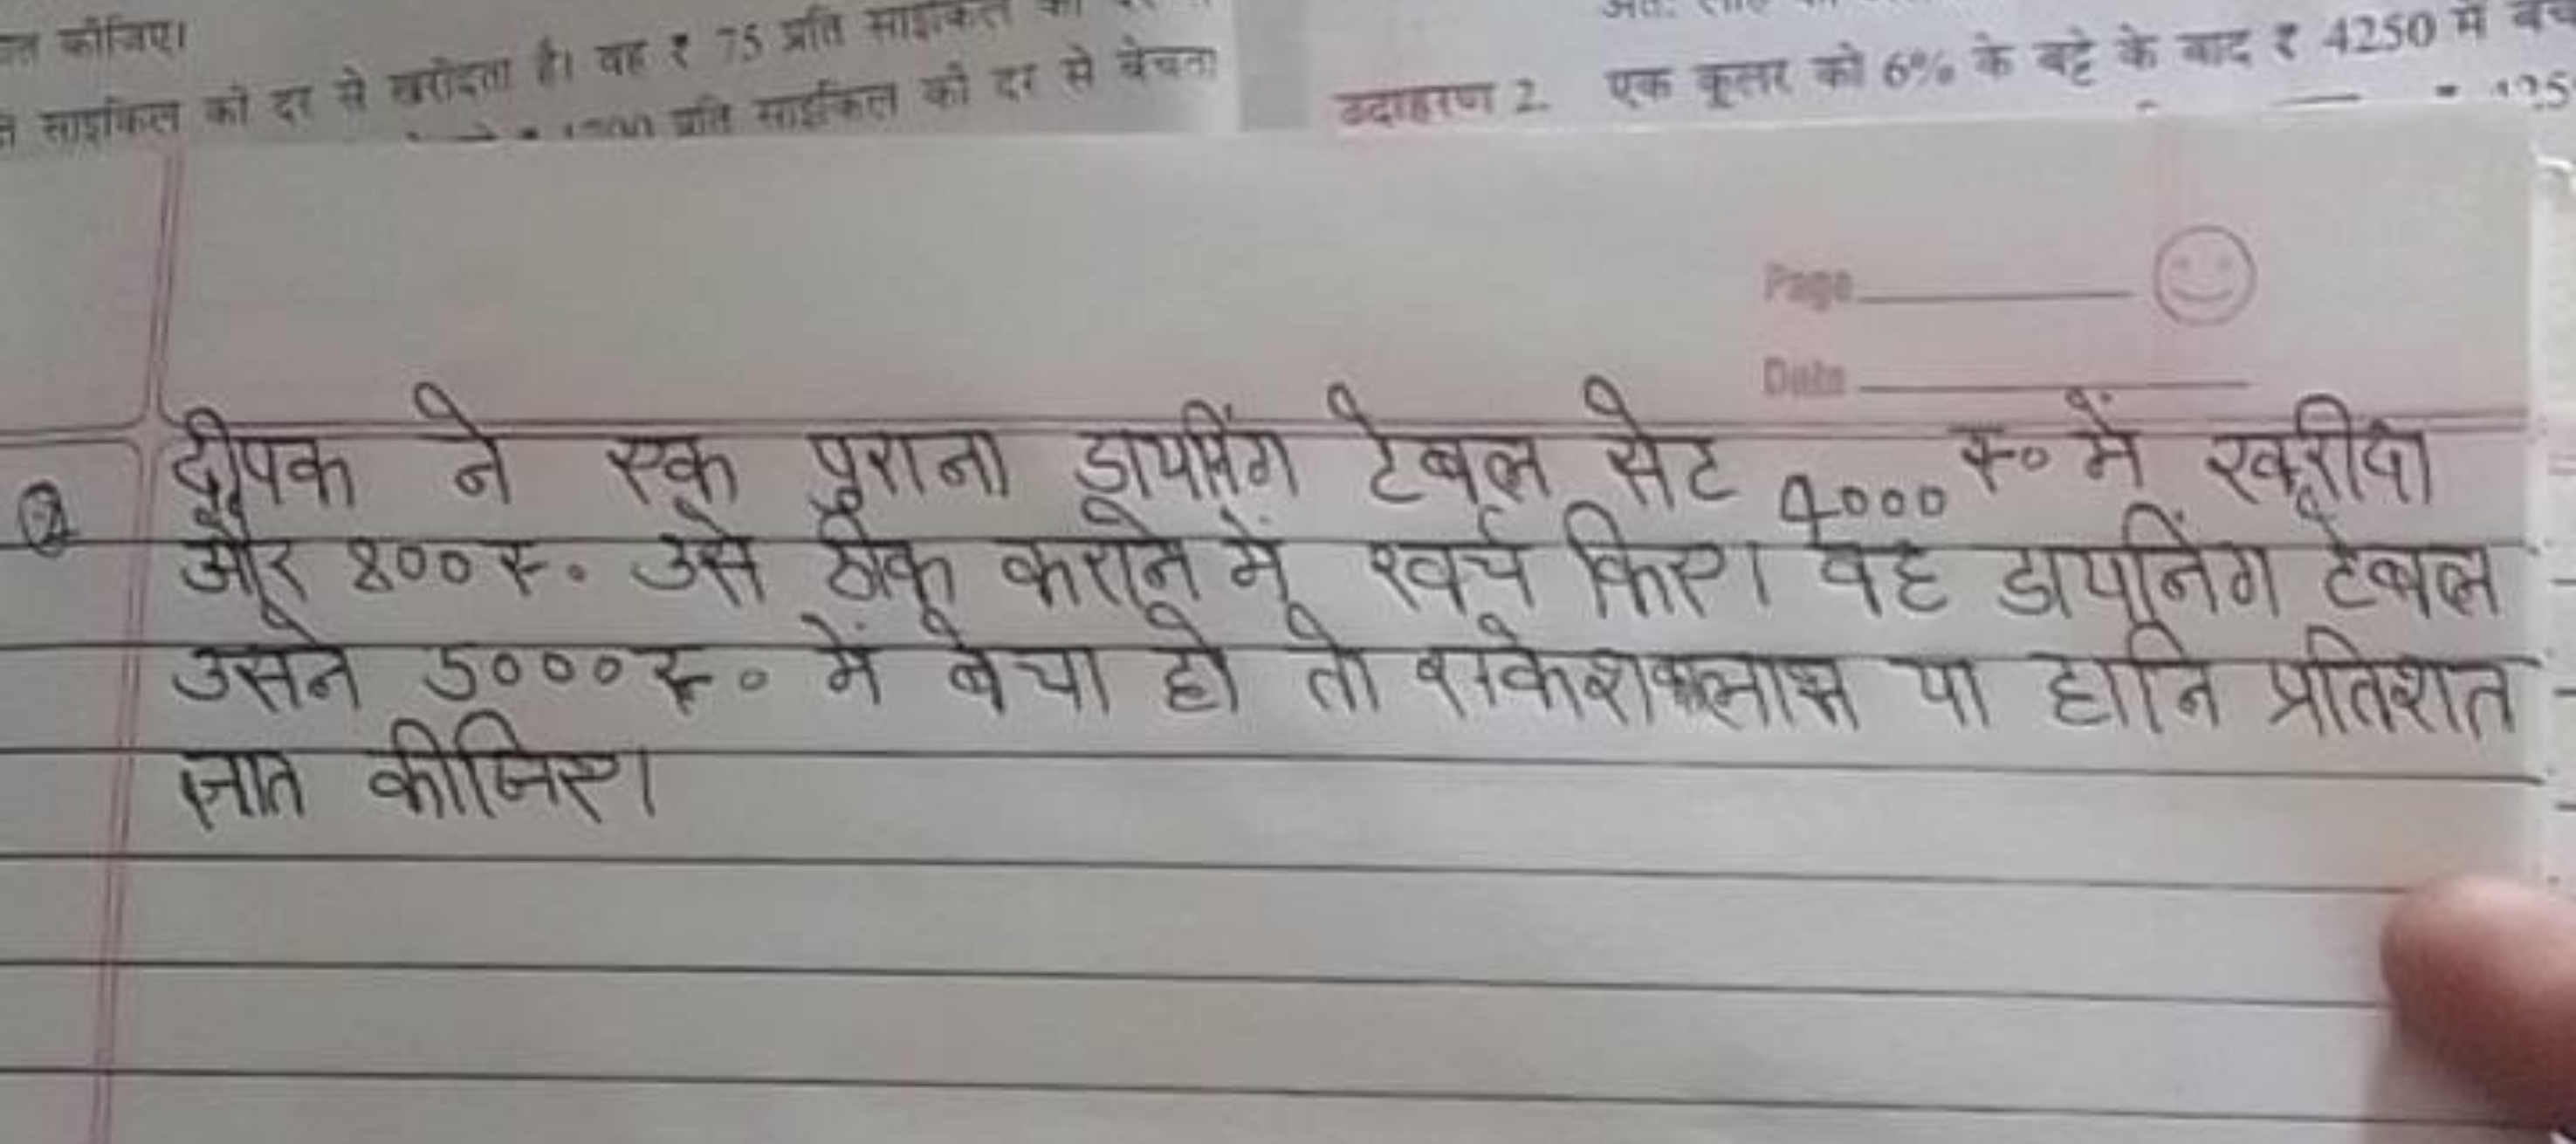 कीजिए।
साइकिल की दर से खरीदता है। वह ₹ 75 प्रति साइकिल
प्रति साइकिल की दर से बेचता
उदाहरण 2. एक कूलर को 6% के बट्टे के बाद ₹ 4250 में
Page
Date
दीपक ने एक पुराना डायनिंग टेबल सेट 4000 रु० में खरीदा
और 800 रु. उसे ठीक कराने में खर्च किए। वह डायनिंग टेबल
उसने 5000 रु० में बेचा हो तो लाभ या हानि प्रतिशत
ज्ञात कीजिए।